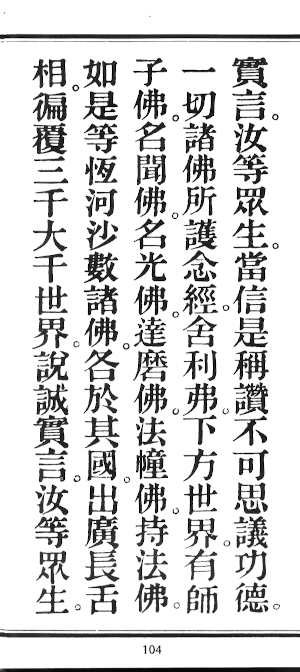 實言。汝等眾生。當信是稱讚不可思議功德。
一切諸佛所護念經。舍利弗。下方世界。有師
子佛。名聞佛。名光佛。達磨佛。法幢佛。持法佛。
如是等恆河沙數諸佛。各於其國。出廣長舌
相。徧覆三千大千世界。說誠實言。汝等眾生。
104